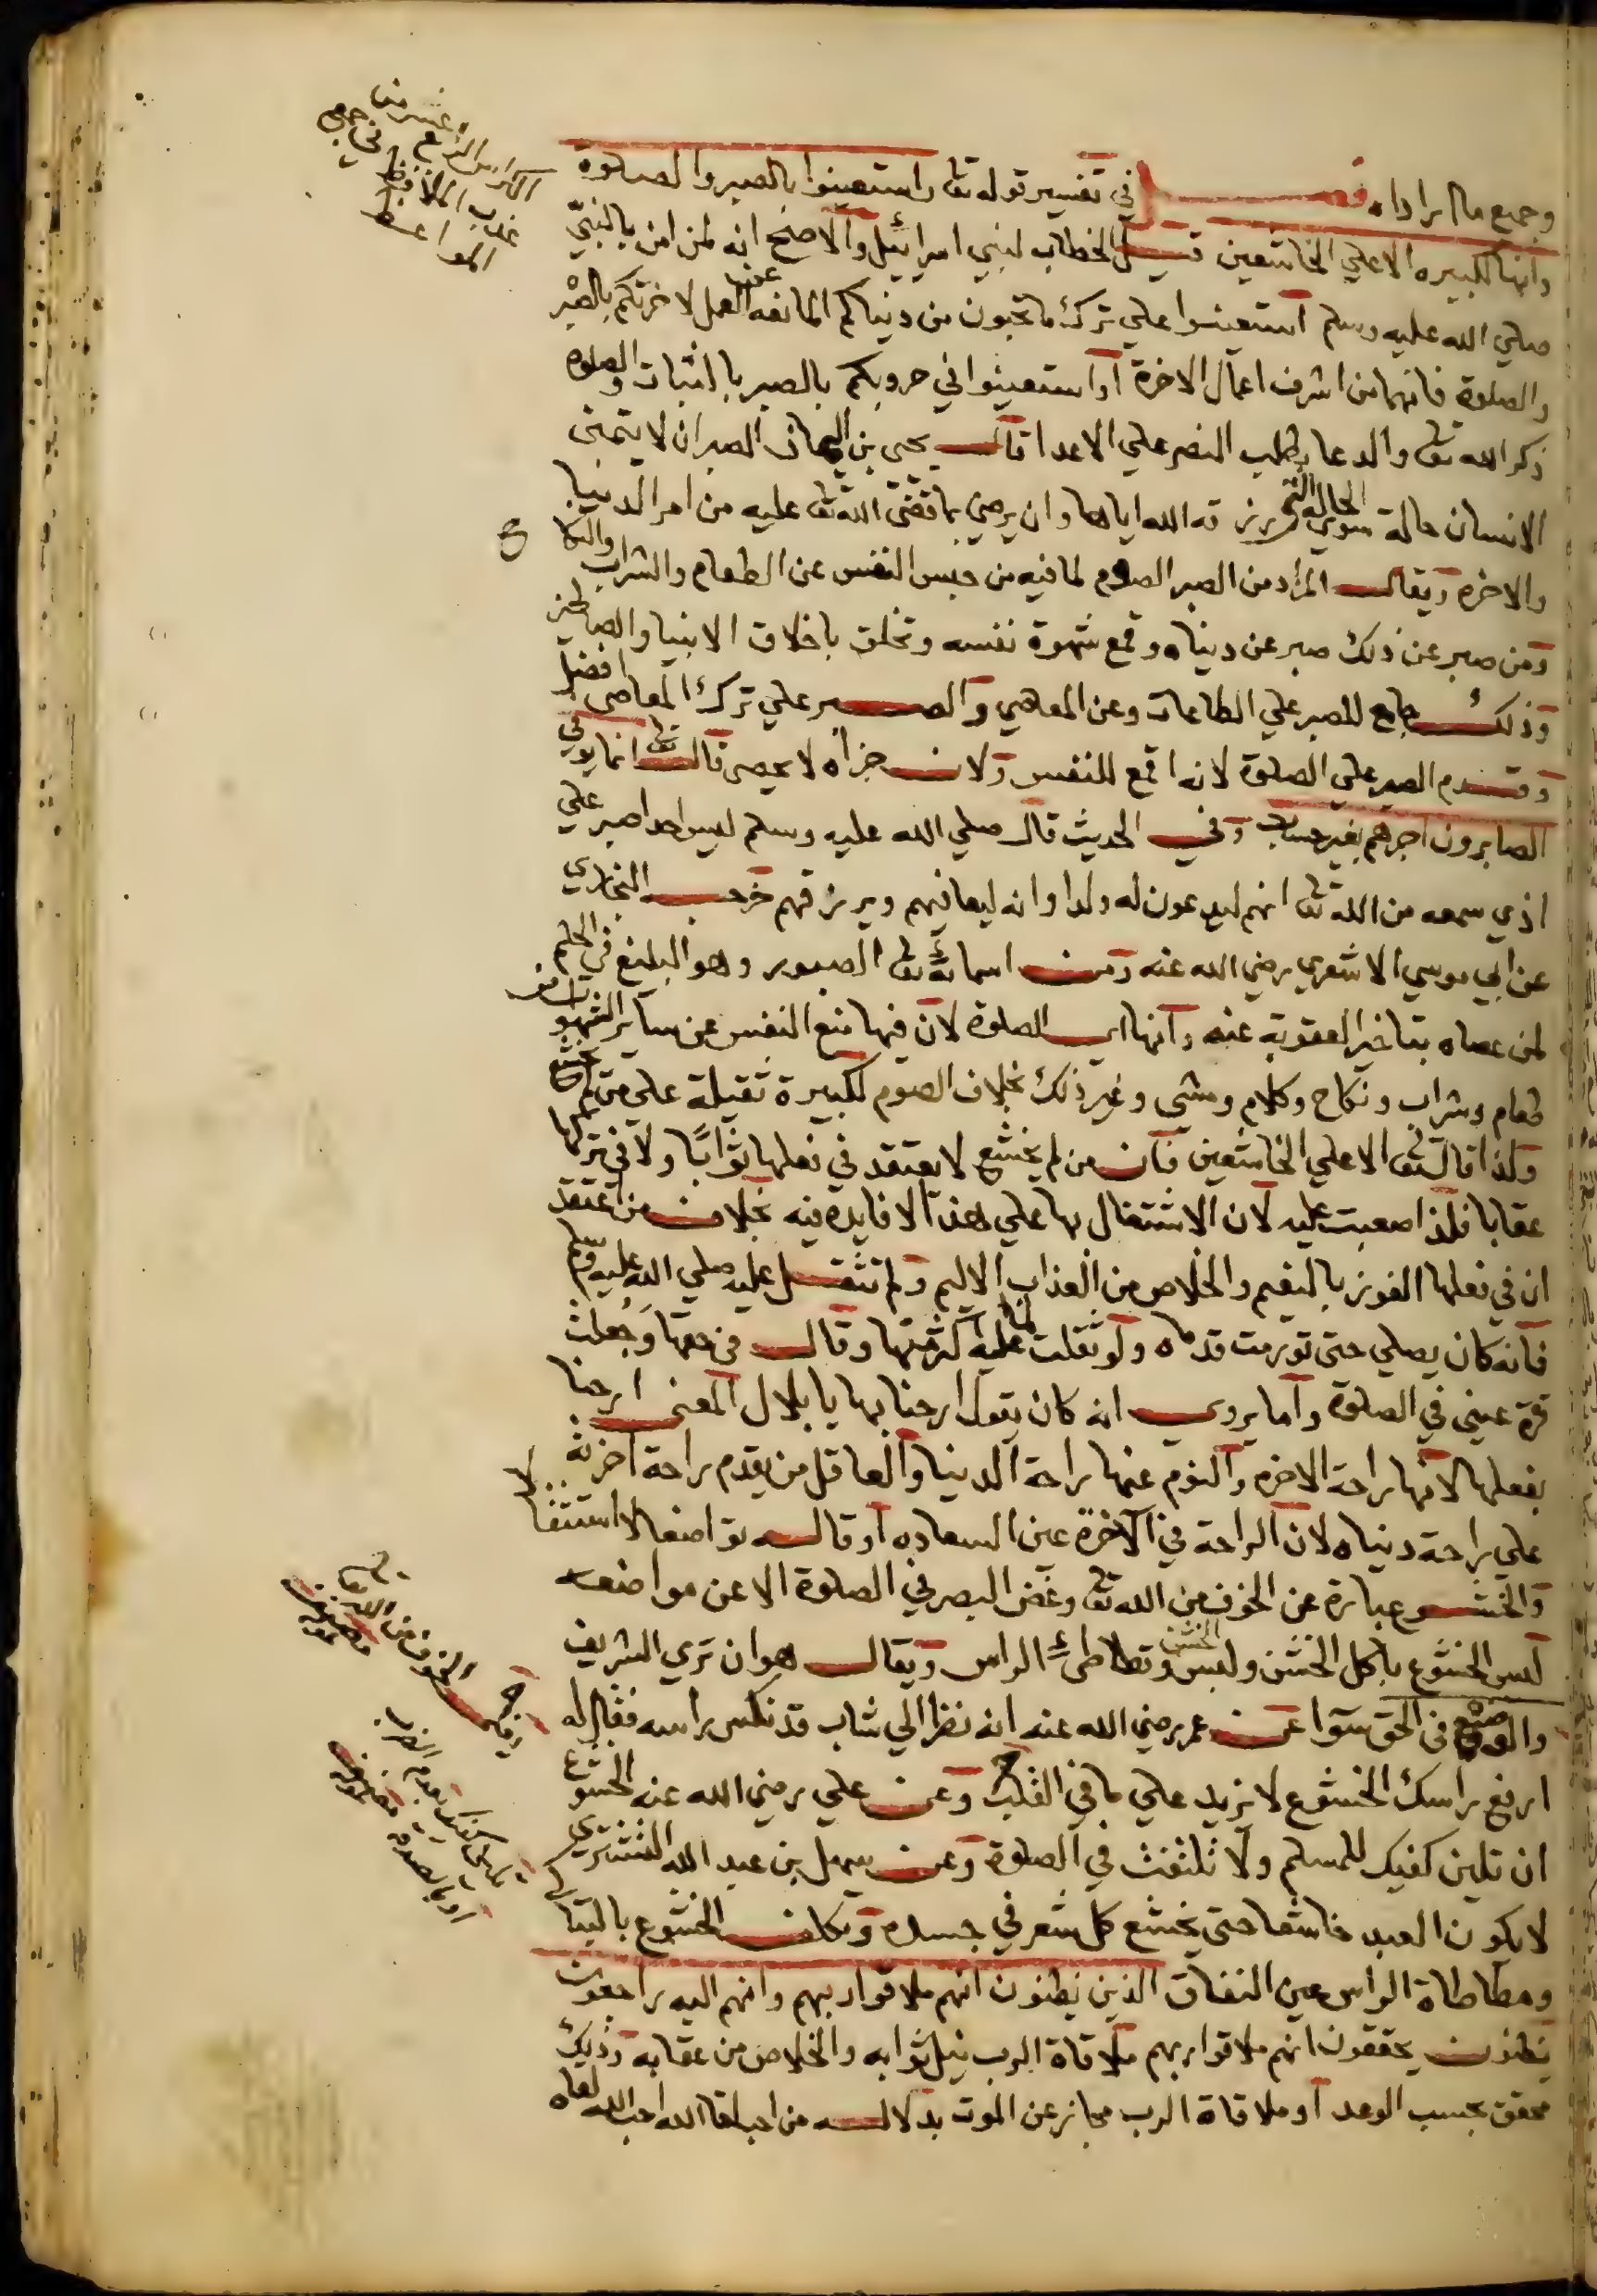 وجميع ما اراداه فصل في تفسير قوله تعا واستعينوا بالصبر والصلوة
وانها لكبيره الا علي الخاشعين قيل الخطاب لبني اسرائيل والاصح انه لمن امن بالنبي
صلي الله عليه وسلم استعينوا علي ترك ما تحبون من دنياكم المانعه عن العمل لاخرتكم بالصبر
والصلوة فانهما من اشرف اعمال الاخرة او استعينوا في حروبكم بالصبر بالثبات والصلوه
ذكر الله تعا والدعا بطلب النصر علي الاعدا قال يحيى بن اليمان الصبر ان لا يتمنى
الانسان حالة سوي الحالة التي رزقه الله اياها وان يرضي بما قضى الله تعا عليه من امر الدنيا
والاخرة ويقال المراد من الصبر الصوم لما فيه من حبس النفس عن الطعام والشراب والنكاح
ومن صبر عن ذلك صبر عن دنياه وقمع شهوة نفسه وتخلق باخلاق الانبيا والصالحين
وذلك جامع للصبر علي الطاعات وعن المعاصي والصبر علي ترك المعاصي افضل
وقدم الصبر علي الصلوة لانه اقمع للنفس ولان جزاه لا يحصر قال تعا انما يوفي
الصابرون اجرهم بغير حساب وفي الحديث قال صلي الله عليه وسلم ليس احد اصبر علي
اذي سمعه من الله تعا انهم ليدعون له ولدا وانه ليعافيهم ويرزقهم خرجه البخاري
عن ابي موسي الاشعري رضي الله عنه ومن اسمائه تعا الصبور وهو البليغ في الحلم
لمن عصاه بتاخير العقوبة عنه وانها اي الصلوة لان فيها منع النفس عن ساير الشهوات من
طعام وشراب ونكاح وكلام ومشي وغير ذلك بخلاف الصوم لكبيرة ثقيلة علي من لم يخشع
ولذا قال تعا الا علي الخاشعين فان من لم يخشع لا يعتقد في فعلها ثوابا ولا في تركها
عقابا فلذا صعبت عليه لان الاشتغال بها علي هذا لا فايده فيه بخلاف من اعتقد
ان في فعلها الفوز بالنعيم والخلاص من العذاب الاليم ولم تثقل عليه صلي الله عليه وسلم
فانه كان يصلي حتى تورمت قدماه ولو ثقلت عليه لما اكثر منها وقال في حقها وجعلت
قرة عيني في الصلوة واما يروي انه كان يقول ارحنا بها يا بلال المعنى ارحنا
بفعلها لانها راحة الاخره والنوم عنها راحة الدنيا والعاقل من يقدم راحة اخرته
علي راحة دنياه لان الراحة في الآخرة عين السعاده او قاله تواضعا لا استثقالا
والخشوع عبارة عن الخوف من الله تعا وغض البصر في الصلوة الا عن مواضعه
ليس الخشوع باكل الخشن ولبس الخشن وتطاطئ الراس ويقال هو ان تري الشريف
والوضيع في الحق سوا عن عمر رضي الله عنه انه نظر الي شاب قد نكس راسه فقال له
ارفع راسك الخشوع لا يزيد علي ما في القلب وعن علي رضي الله عنه الخشوع
ان تلين كفيك للمسلم ولا تلتفت في الصلوة وعن سهل بن عبد الله التستري
لا يكون العبد خاشعا حتى يخشع كل شعر في جسده وتكلف الخشوع بالتباكي
ومطاطاة الراس عين النفاق الذين يظنون انهم ملاقوا ربهم وانهم اليه راجعون
يظنون يحققون انهم ملاقوا ربهم ملاقاة الرب نيل ثوابه والخلاص من عقابه وذلك
محقق بحسب الوعد او ملاقاة الرب مجاز عن الموت بدلاله من احب لقا الله احب الله لقاه
الرابع عشر من
في جميع
المواعظ
وقيل الخوف من الله تعا